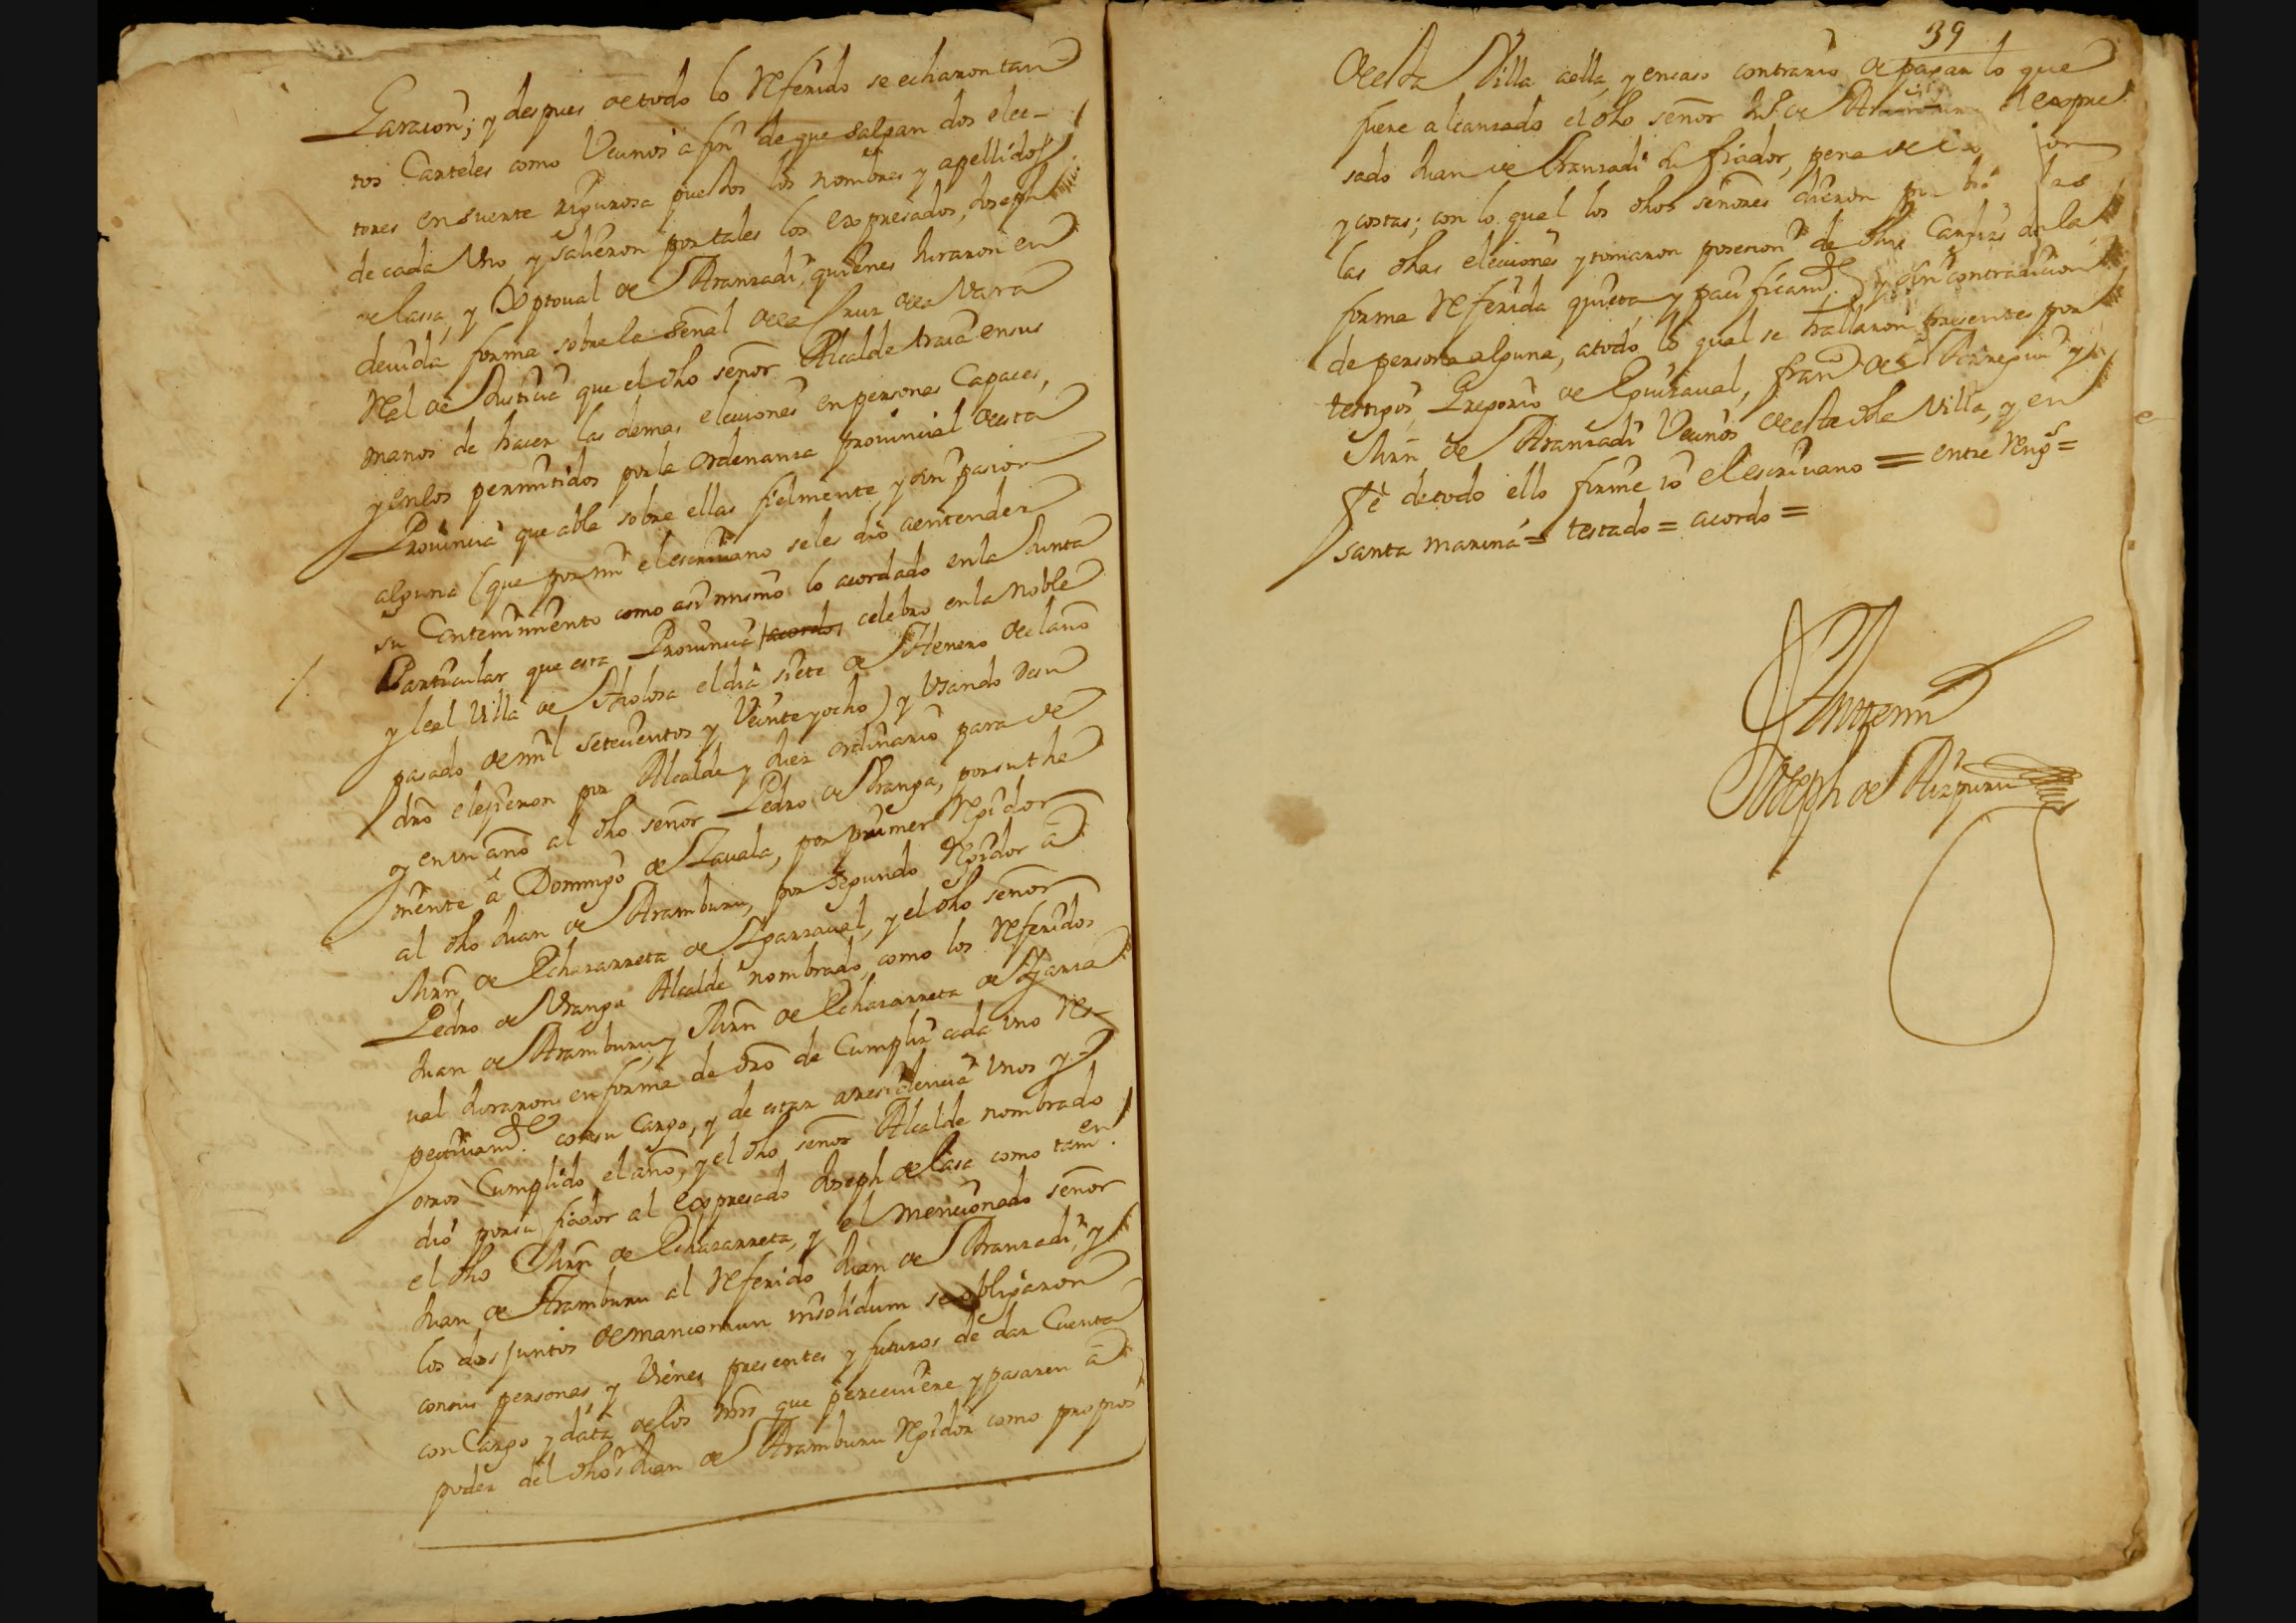 Garacion; y despues de todo lo Referido se echaron tan
tos Carteles como Vecinos a fin de que salgan dos elec-
tores en suerte rigurosa puestos los nombres y apellidos
de cada Uno, y salieron por tales los expresados, Joseph
de lassa, y Xptoual de Aranzadi, quienes Juraron en
deuida forma sobre la señal de la Cruz de la Vara
Rel de Justicia que el dho señor Alcalde traia en sus
manos de hacer las demas elecciones en personas Capaces,
y en los permitidos por la ordenanza prouincial de esta
Prouincia que abla sobre ellas fielmente, y sin pasion
alguna (que por mi el escriuano se les dio a entender
su Contenimiento como asi mismo lo acordado en la Junta
Particular que esta Prouincia acordo celebro en la Noble
y leal Villa de Tholosa el dia siete de Henero de el año
pasado de mil setecientos y Veinte y ocho) y Usando de su
dro elegieron por Alcalde y Juez ordinario para de
oy en un año al dho señor Pedro de Vranga, por su the
niente a Domingo de Zauala, por primer Regidor
al dho Juan de Aramburu, por segundo Regidor a
Mrn de Echazarreta de Ygarzaual, y el dho señor
Pedro de Vranga Alcalde nombrado, como los Referidos
Juan de Aramburu y Mrn de Echazarreta de Ygarza
ual Juraron en forma de dro de Cumplir cada uno Res-
pectiuamte con su Cargo, y de estar a residencia Unos y
otros Cumplido el año, y el dho señor Alcalde nombrado
dio por su fiador al expresado Joseph de lasa como tamen
el dho Mrn de Echazarreta, y el mencionado señor
Juan de Aramburu al Referido Juan de Aranzadi, y
los dos juntos de mancomun insolidum se obligaron
con sus personas y Vienes presentes y futuros de dar Cuenta
con Cargo y data de los mrs que perceuiere y pasaren a
poder del dho Sr Juan de Aramburu Regidor como propios
39
de esta Villa a ella, y en caso contrario de pagar lo que
fuere alcanzado el dho señor Jn de el expre
sado Juan de Aranzadi su fiador, pena de
y costas; con lo qual los dhos señores dieron por las
las dhas elecciones y tomaron posecion de dhos Cargos de la
forma Referida quieta y pacificamte y sin contradicion
de persona alguna, a todo lo qual se hallaron presentes por
testigos Gregorio de Eguizaual, Franco de y
Mrn de Aranzadi Vecinos de esta dha Villa, y en
fe de todo ello firme io el escriuano = entre Rengs =
santa marina = testado = acordo =
Ante mi
Joseph de Aizpuru